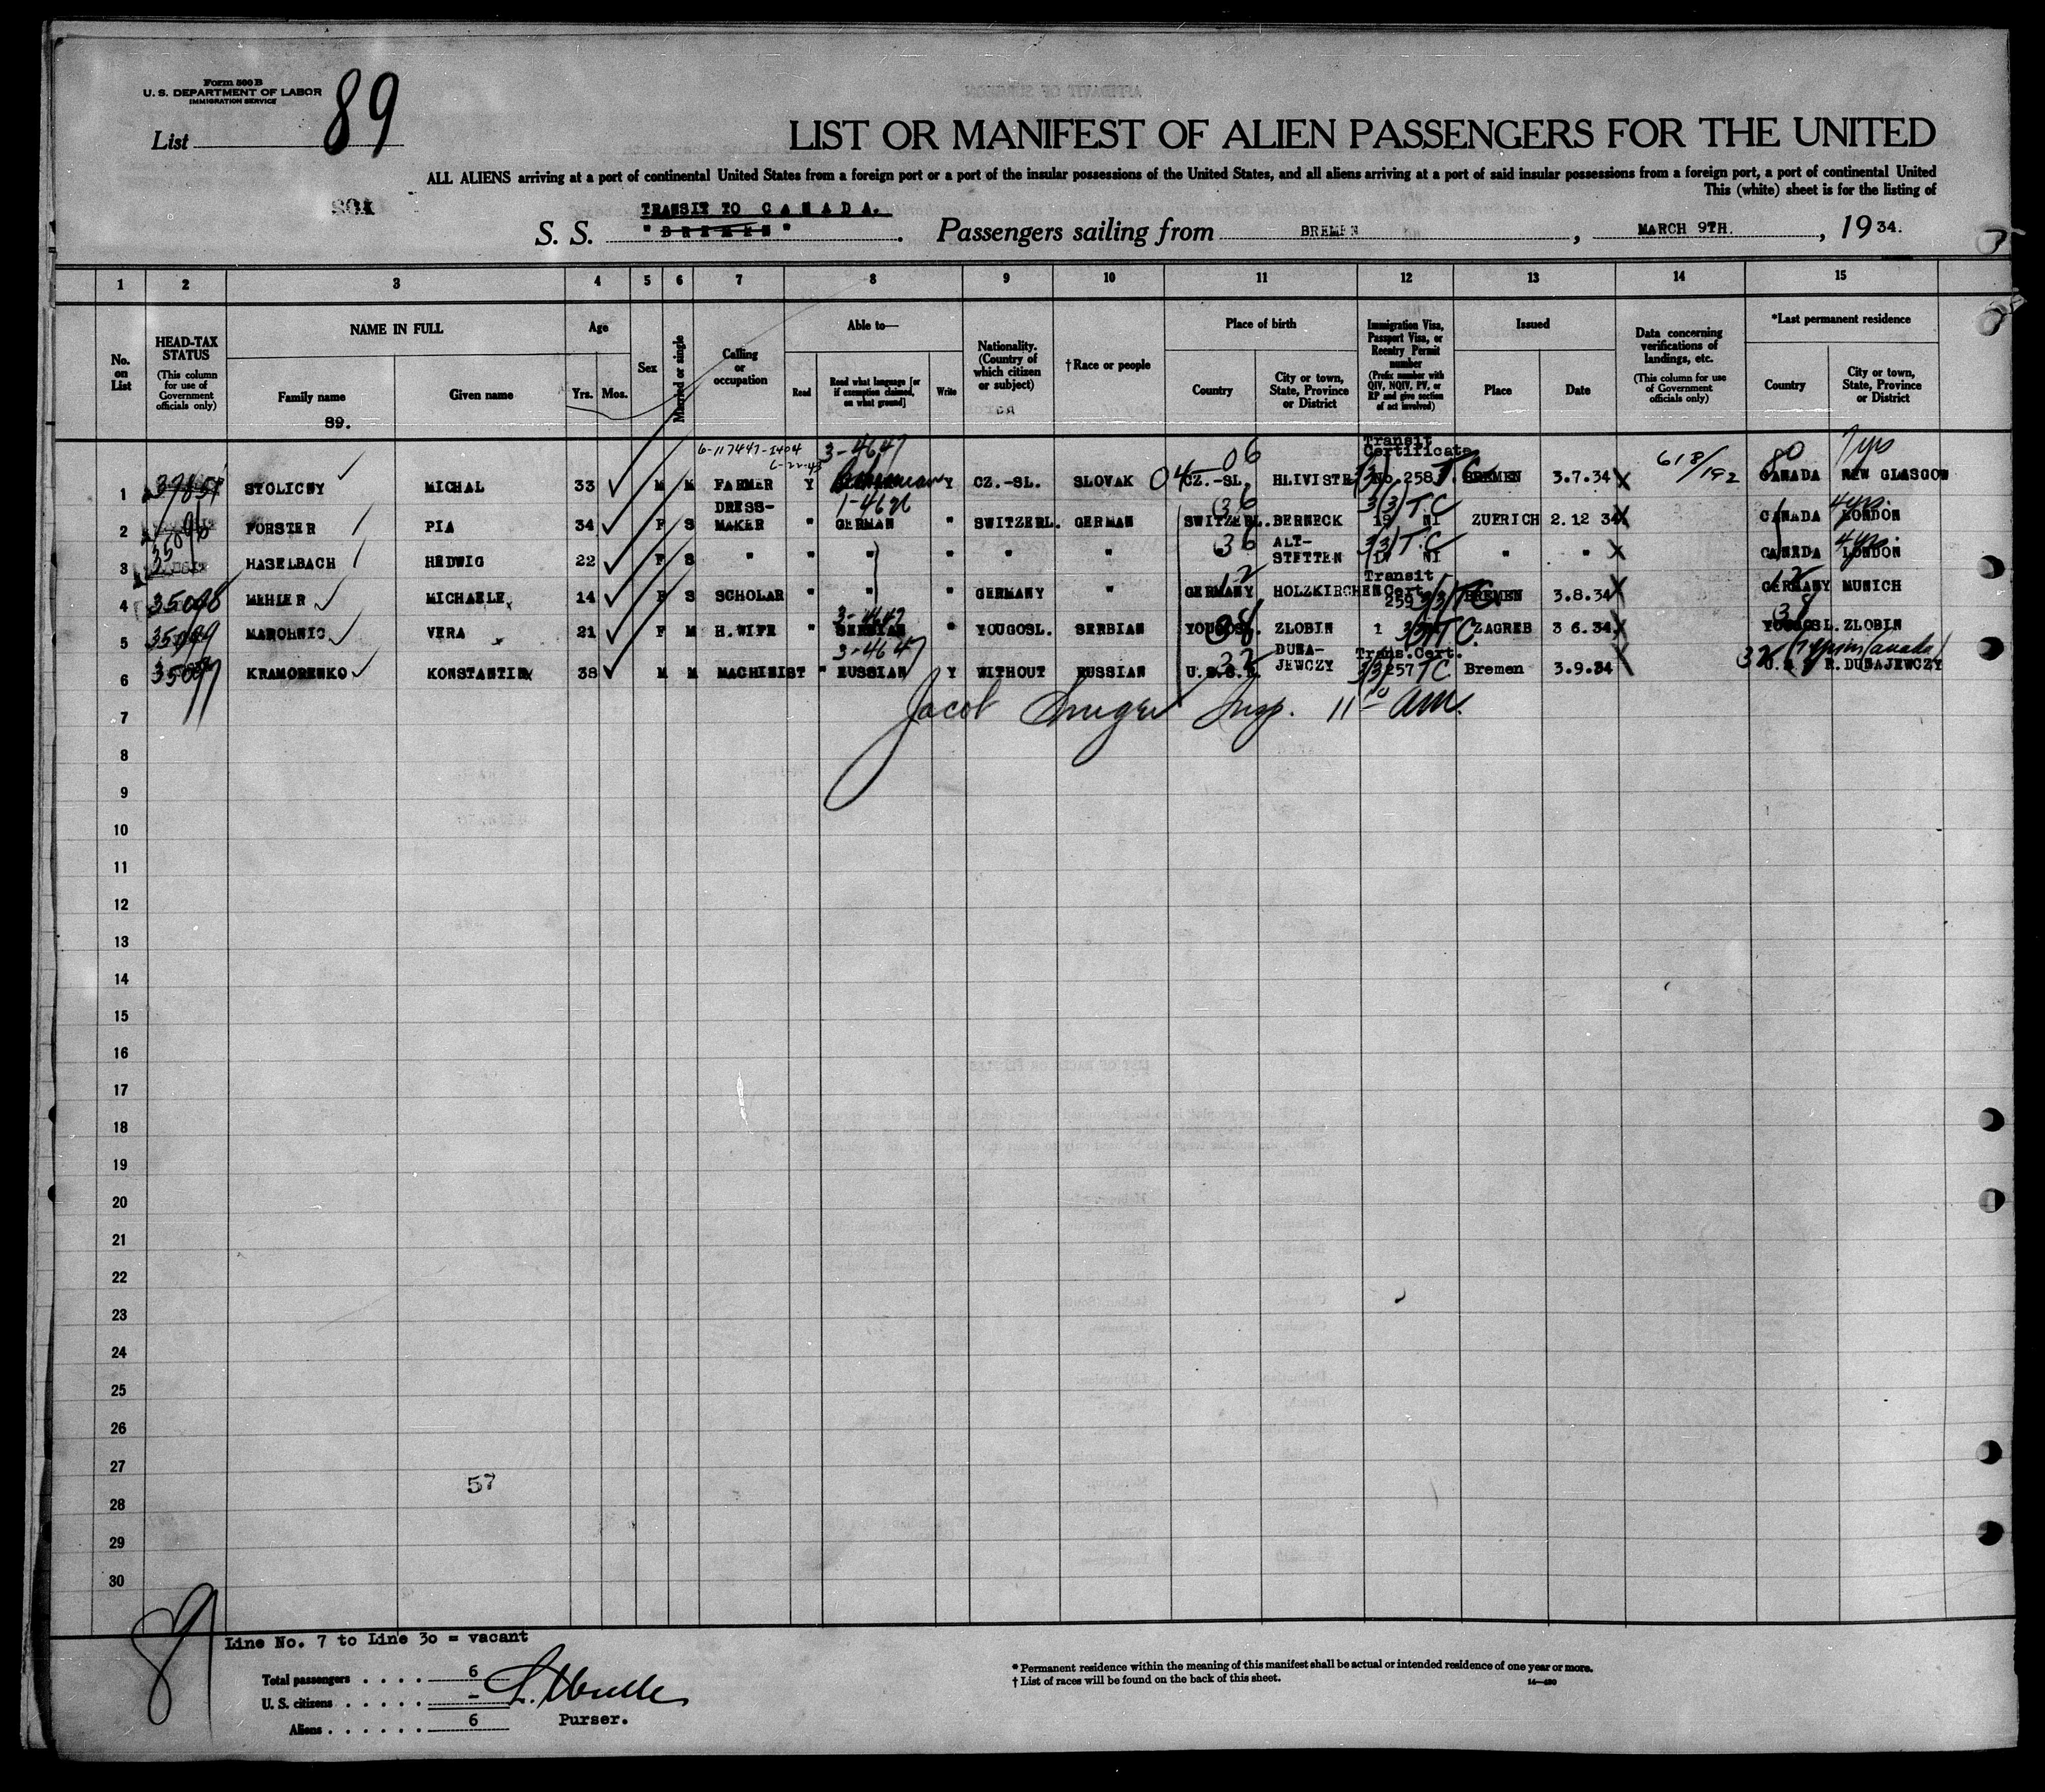 Form 500 B
U. S. DEPARTMENT OF LABOR
IMMIGRATION SERVICE
List 89
LIST OR MANIFEST OF ALIEN PASSENGERS FOR THE UNITED
ALL ALIENS arriving at a port of continental United States from a foreign port or a port of the insular possessions of the United States, and all aliens arriving at a port of said insular possessions from a foreign port, a port of continental United
This (white) sheet is for the listing of
TRANSIT TO CANADA.
S. S. "BREMEN". Passengers sailing from BREMEN, MARCH 9TH., 1934.
1 2 3 4 5 6 7 8 9 10 11 12 13 14 15
No. on List
HEAD-TAX STATUS (This column for use of Government officials only)
NAME IN FULL
Family name
Given name
89.
Age
Yrs. Mos.
Sex
Married or single
Calling or occupation
Able to—
Read
Read what language [or if exemption claimed, on what ground]
Write
Nationality. (Country of which citizen or subject)
† Race or people
Place of birth
Country
City or town, State, Province or District
Immigration Visa, Passport Visa, or Reentry Permit number (Prefix number with QIV, NQIV, PV, or RP and give section of act involved)
Issued
Place
Date
Data concerning verifications of landings, etc. (This column for use of Government officials only)
*Last permanent residence
Country
City or town, State, Province or District
6-117447-1404
3-4647 06 Transit Certificate 618/192 80 7 yrs
1 STOLICNY MICHAL 33 M M FARMER Y Y CZ.-SL. SLOVAK 04 CZ.-SL. No. 258 T.C. BREMEN 3.7.34 X CANADA NEW GLASGOW
1-4626 36 3/3/T.C 4 yrs.
2 FORSTER PIA 34 F S DRESS-MAKER " GERMAN " SWITZERL. GERMAN SWITZERL. BERNECK 19 NI ZUERICH 2.12 34 X CANADA LONDON
36 3/3/T.C 4 yrs.
3 HASELBACH HEDWIG 22 F S " " " " " " ALT-STETTEN NI " " X CANADA LONDON
12 Transit 12
4 35098 MICHAELE 14 F S SCHOLAR " " " GERMANY " GERMANY HOLZKIRCHEN Cert. 259 3/3/TC BREMEN 3.8.34 X GERMANY MUNICH
3-4647 38 38
5 35099 MAROHNIC VERA 21 F M H.WIFE " SERBIAN " YOUGOSL. SERBIAN YOUGOSL. ZLOBIN 1 T.C. ZAGREB 3 6.34 X YOUGOSL. ZLOBIN
3-4647 32 Trans.Cert. 32 (7 yrs in Canada)
6 KRAMORENKO KONSTANTIN 38 M M MACHINIST " RUSSIAN Y WITHOUT RUSSIAN U.S.S.R. DUNA-JEWCZY 3/3/257 TC Bremen 3.9.34 X U.S.S.R. DUNAJEWCZY
7
Jacob Insp. 11 am.
8
9
10
11
12
13
14
15
16
17
18
19
20
21
22
23
24
25
26
27
57
28
29
30
89
Line No. 7 to Line 30 = vacant
Total passengers . . . . 6
U. S. citizens . . . . . –
Aliens . . . . . . 6
Purser.
* Permanent residence within the meaning of this manifest shall be actual or intended residence of one year or more.
† List of races will be found on the back of this sheet.